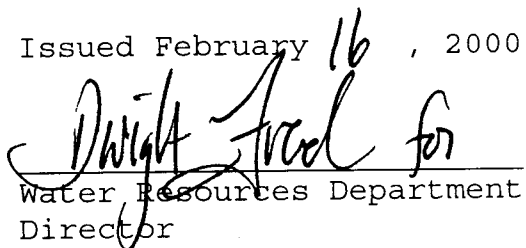 Issued February 16 , 2000
Dwight French for
Water Resources Department
Director